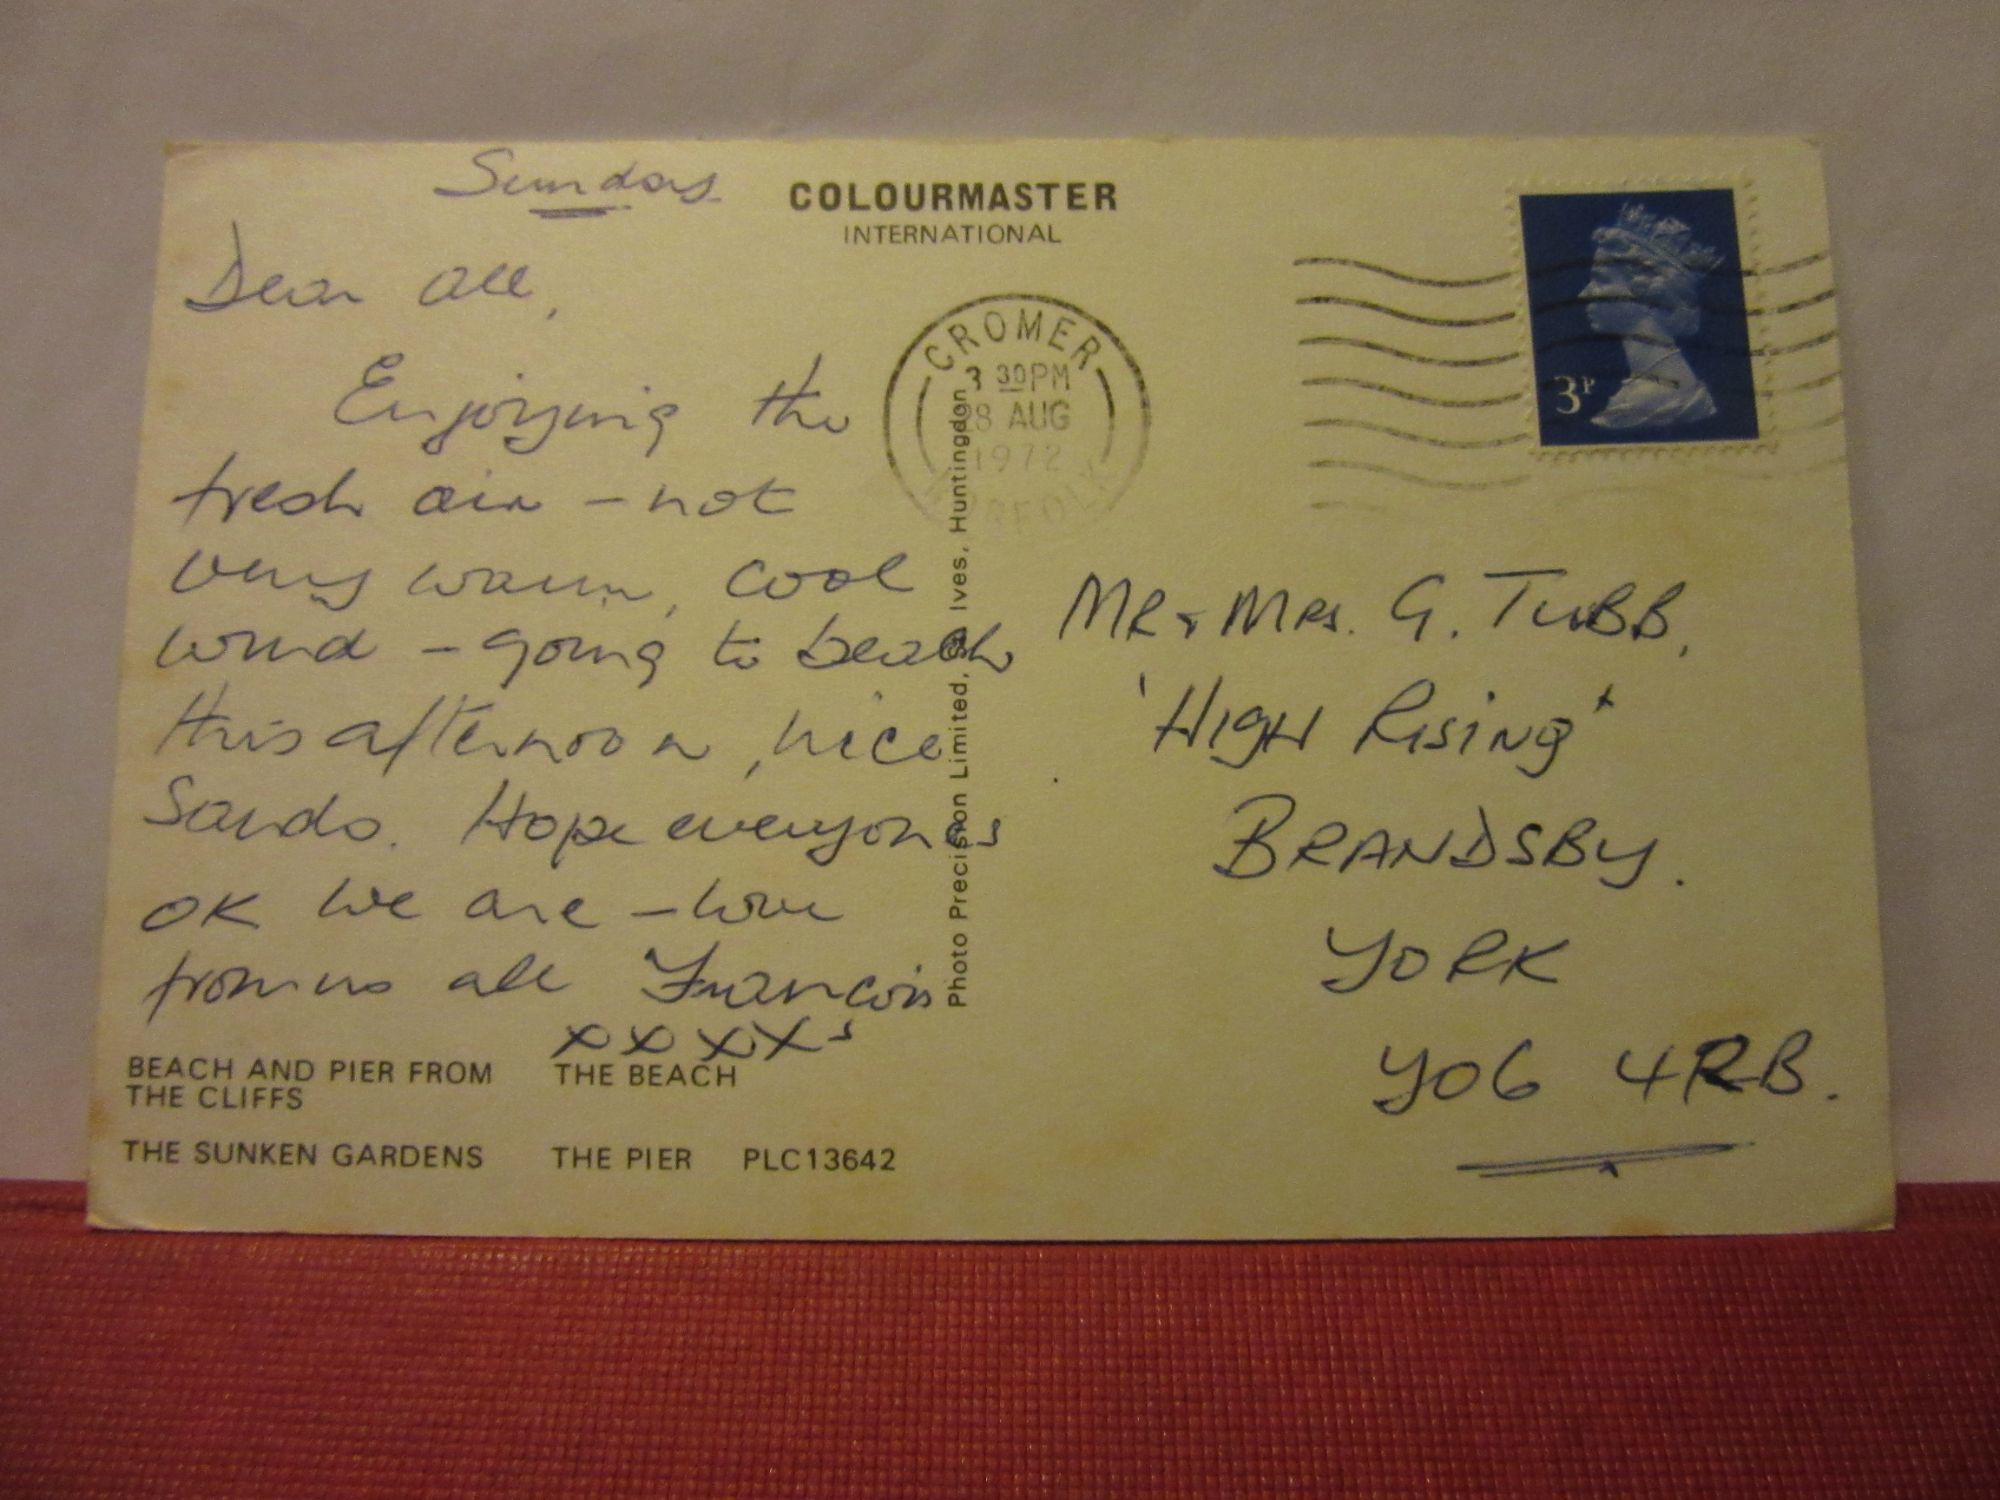 Sunday
COLOURMASTER
INTERNATIONAL
Dear all,
Enjoying the
fresh air - not
very warm, cool
wind - going to beach
this afternoon, nice
Sands. Hope everyone's
OK we are - love
from us all
xxxx
BEACH AND PIER FROM
THE CLIFFS
THE BEACH
THE SUNKEN GARDENS
THE PIER
PLC13642
Photo Precision Limited, St. Ives, Huntingdon
CROMER
3 30PM
28 AUG
1972
NORFOLK
3P
Mr & Mrs. G. TUBB,
'HIGH RISING'
BRANDSBY.
YORK
YO6 4RB.